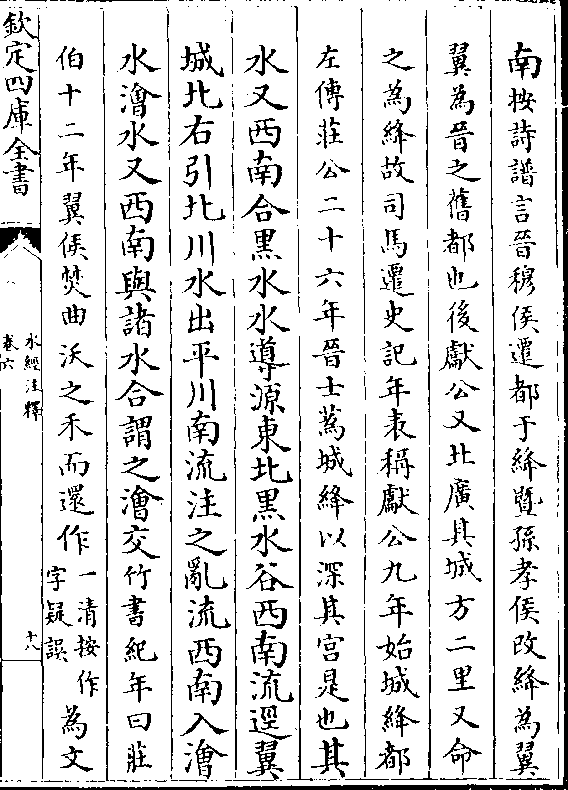 南按詩譜言晉穆侯遷都于絳暨孫孝侯改絳為翼
翼為晉之舊都也後獻公又北廣其城方二里又命
之為絳故司馬遷史記年表稱獻公九年始城絳都
左傳莊公二十六年晉士蒍城絳以深其宫是也其
水又西南合黒水水導源東北黒水谷西南流逕翼
城北右引北川水出平川南流注之亂流西南入澮
水澮水又西南與諸水合謂之澮交竹書紀年曰莊
伯十二年翼侯焚曲沃之禾而還作一清按作字疑誤為文
欽定四庫全書
水經注釋
卷六
十八